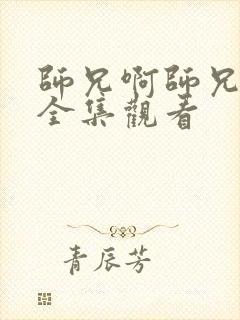 師兄啊師兄
全集觀看
青辰芳